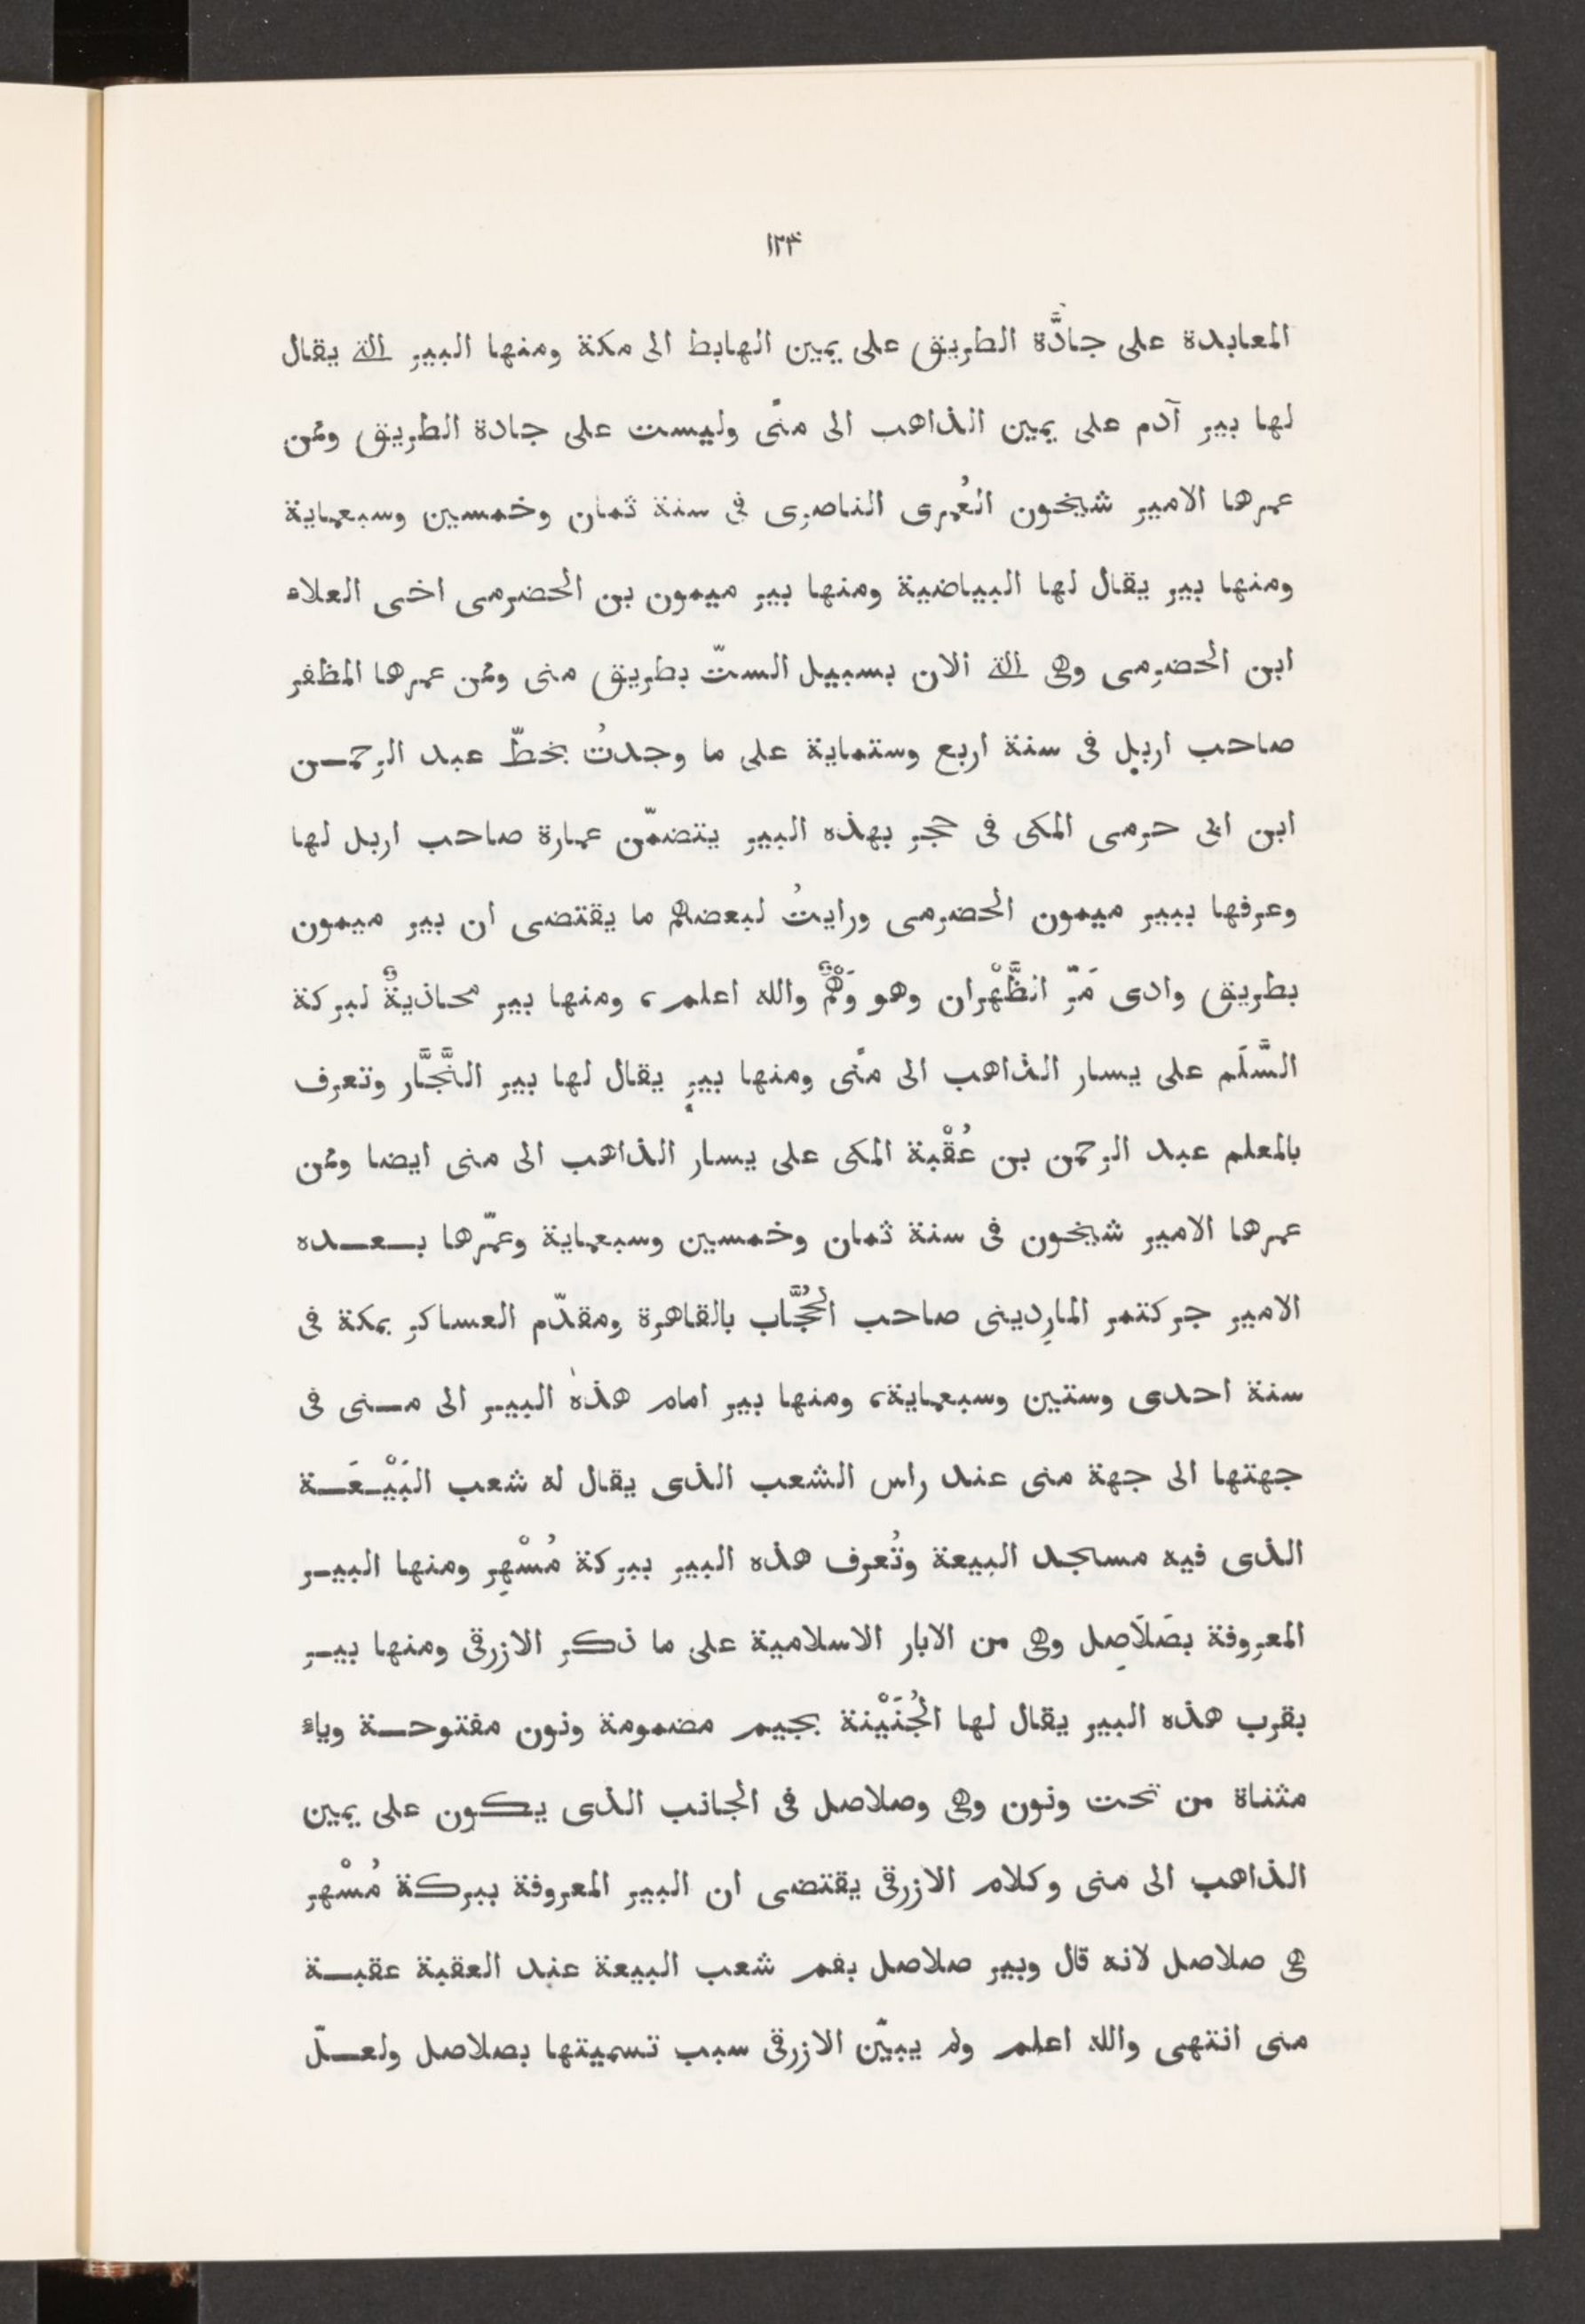 ١٢٣
المعابدة على جادَّة الطريق على يمين الهابط الى مكة ومنها البير التى يقال
لها بير آدم على يمين الذاهب الى منًى وليست على جادة الطريق وممن
عمرها الامير شيخون العُمرى الناصرى فى سنة ثمان وخمسين وسبعماية
ومنها بير يقال لها البياضية ومنها بير ميمون بن الحضرمى اخى العلاء
ابن الحضرمى وهى التى الان بسبيل الستّ بطريق منى وممن عمرها المظفر
صاحب اربِل فى سنة اربع وستماية على ما وجدتُ بخطّ عبد الرحمـن
ابن ابى حرمى المكى فى حجر بهذه البير يتضمّن عمارة صاحب اربل لها
وعرفها ببير ميمون الحضرمى ورايتُ لبعضهم ما يقتضى ان بير ميمون
بطريق وادى مَرّ الظَّهْران وهو وَهْمٌ والله اعلم، ومنها بير محاذيةٌ لبركة
السَّلَم على يسار الذاهب الى منًى ومنها بيرٍ يقال لها بير النَّجَّار وتعرف
بالمعلم عبد الرحمن بن عُقْبة المكى على يسار الذاهب الى منى ايضا وممن
عمرها الامير شيخون فى سنة ثمان وخمسين وسبعماية وعمّرها بـعـده
الامير جركتمر المارِدينى صاحب الحُجَّاب بالقاهرة ومقدّم العساكر بمكة فى
سنة احدى وستين وسبعماية، ومنها بير امام هذه البيـر الى مـنى فى
جهتها الى جهة منى عند راس الشعب الذى يقال له شعب البَيْـعَـة
الذى فيه مسجد البيعة وتُعرف هذه البير ببركة مُسْهِر ومنها البيـر
المعروفة بصَلَاصِل وهى من الابار الاسلامية على ما ذكر الازرقى ومنها بيـر
بقرب هذه البير يقال لها الجُنَيْنة بجيم مضمومة ونون مفتوحـة وياء
مثناة من تحت ونون وهى وصلاصل فى الجانب الذى يكون على يمين
الذاهب الى منى وكلام الازرقى يقتضى ان البير المعروفة ببركة مُسْهر
هى صلاصل لانه قال وبير صلاصل بفم شعب البيعة عند العقبة عقبـة
منى انتهى والله اعلم ولم يبيّن الازرقى سبب تسميتها بصلاصل ولعـلّ